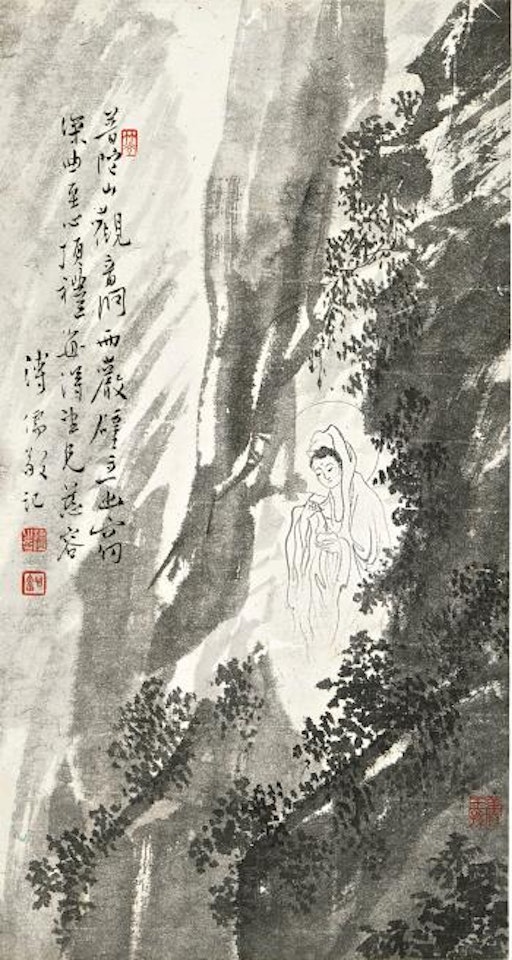 普陀山觀音洞兩巖壁立幽窈
深曲至心頂禮每得望見慈容
溥儒敬記